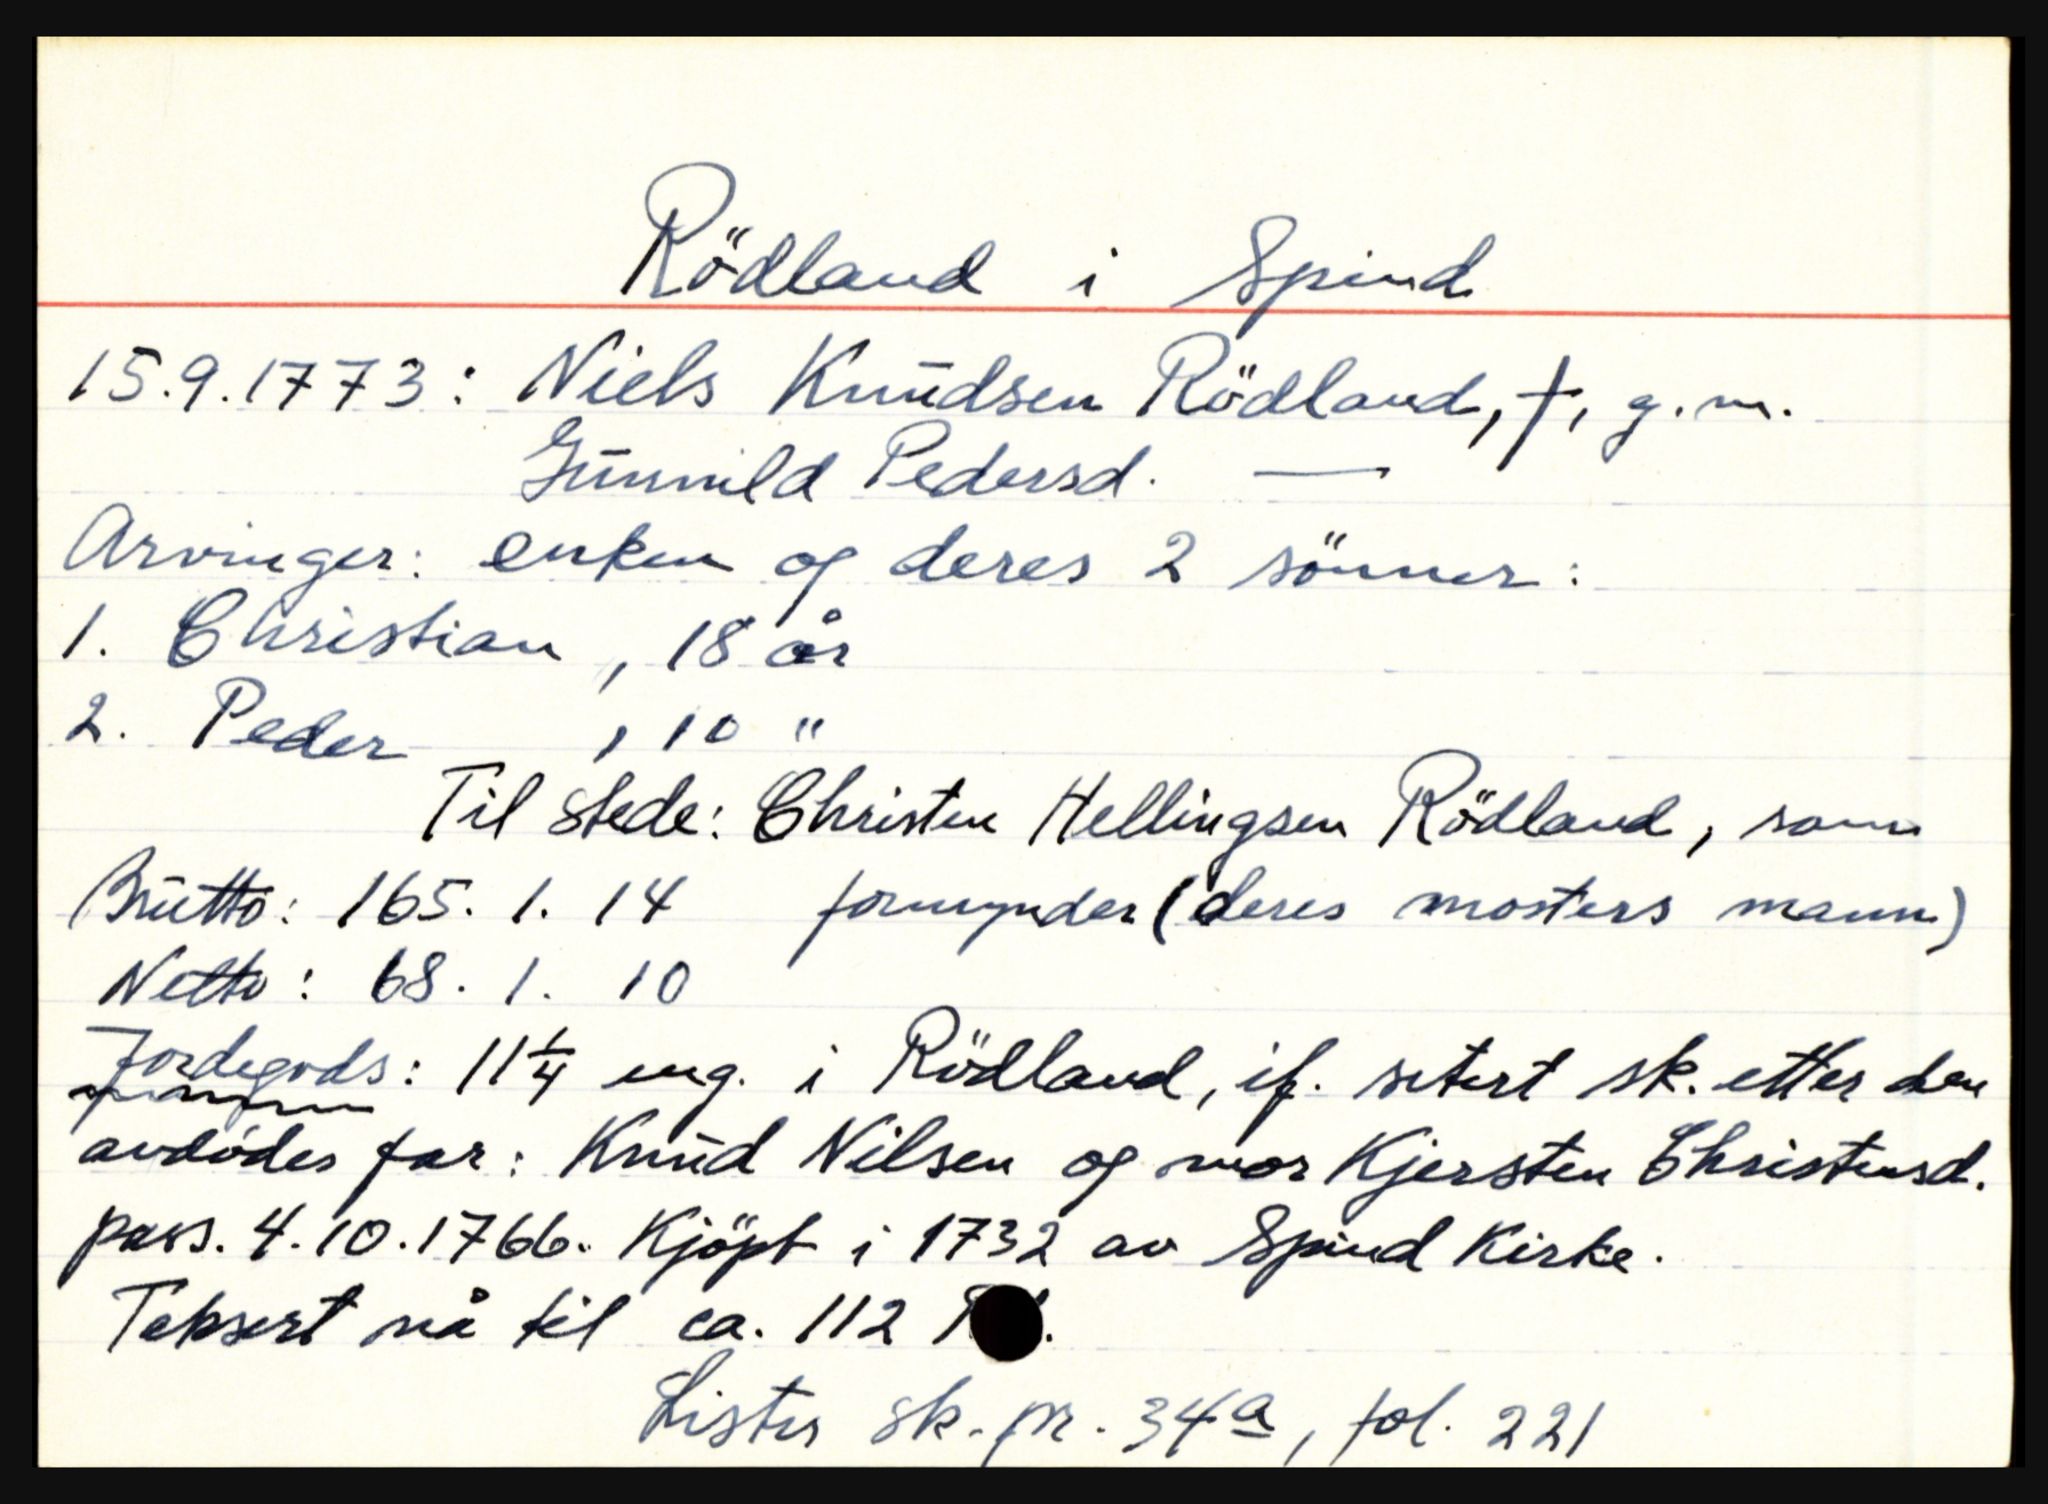 Rödland i Spind
15.9.1773: Niels Knudsen Rödland, †, g. m.
Gunnild Pedersd. —
Arvinger: enken og deres 2 sönner:
1. Christian, 18 år
2. Peder, 10 "
Til stede: Christen Hellingsen Rödland, som
Brutto: 165. 1. 14 formynder (deres mosters mann)
Netto: 68. 1. 10
Jordegods: 11 1/4 eng. i Rödland, if. sitert sk. etter den
avdödes far: Knud Nilsen og mor Kjersten Christensd.
pass. 4.10.1766. Kjöpt i 1732 av Spind Kirke.
Taksert nå til ca. 112
Lister sk. pr. 34a, fol. 221